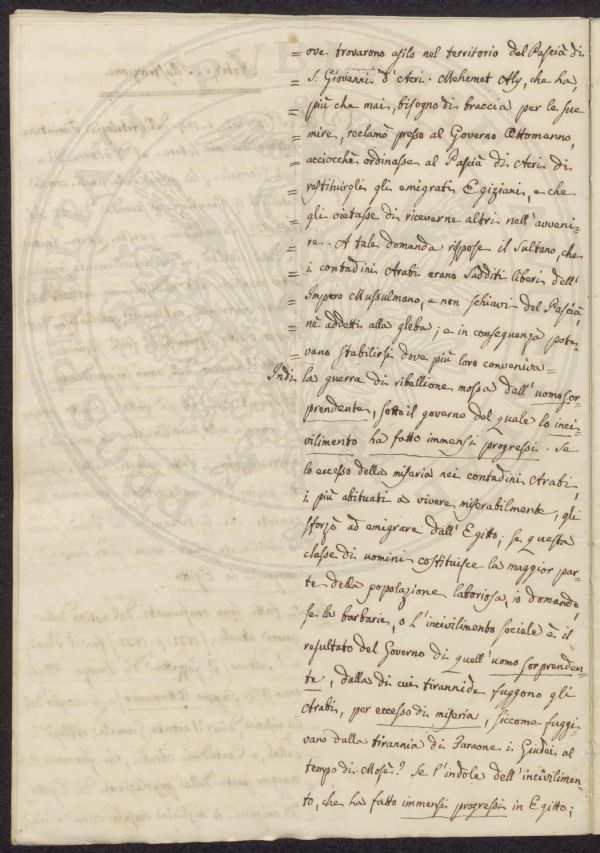 = ove trovarono asilo nel territorio del Pascià di
= S. Giovanni d'Acri. Mehemet Aly, che ha,
= più che mai, bisogno di braccia per le sue
= mire, reclamò presso al Governo Ottomanno,
= acciocchè ordinasse al Pascià di Acri di
= restituirgli gli emigrati Egiziani, e che
= gli vietasse di riceverne altri nell'avveni-
= re. A tale domanda rispose il Sultano, che
= i contadini Arabi erano sudditi liberi dell'
= Impero Mussulmano, e non schiavi del Pascià,
= nè addetti alla gleba; e in conseguenza pote-
= vano stabilirsi dove più loro conveniva =
Indi la guerra di ribellione mossa dall'uomo sor-
prendente, sotto il governo del quale lo inci-
vilimento ha fatto immensi progressi. Se
lo eccesso della miseria nei contadini Arabi,
i più abituati a vivere miserabilmente, gli
sforzò ad emigrare dall'Egitto; se questa
classe di uomini costituisce la maggior par-
te della popolazione laboriosa, io domando,
se la barbarie, o l'incivilimento sociale è il
resultato del Governo di quell'uomo sorprenden-
te, dalla di cui tirannide fuggono gli
Arabi, per eccesso di miseria, siccome fuggi-
vano dalla tirannia di Faraone i Giudei al
tempo di Mosè? Se l'indole dell'incivilimen-
to, che ha fatto immensi progressi in Egitto;